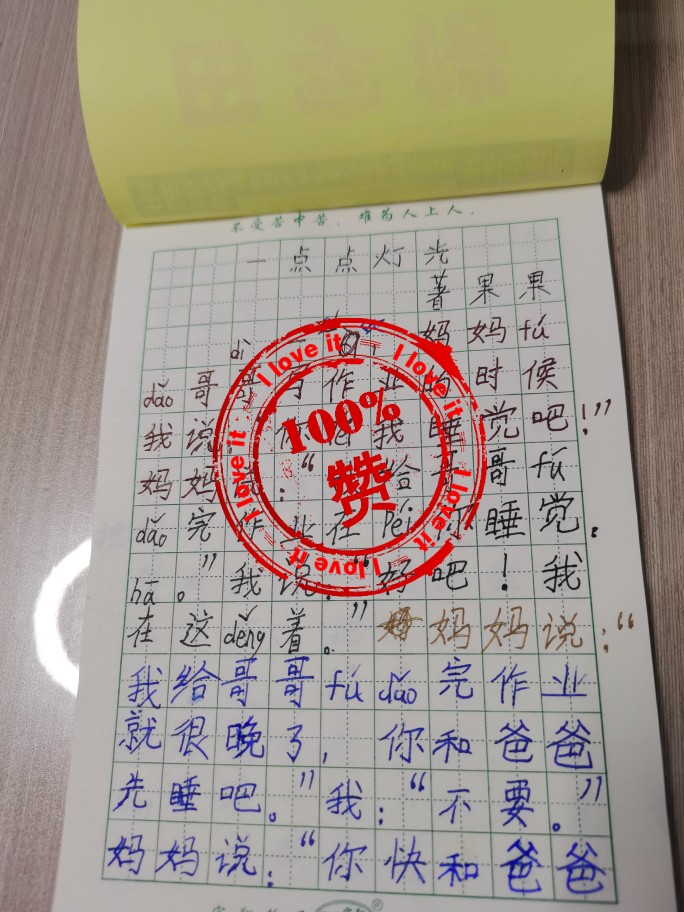 不受苦中苦,难为人上人。
一点点灯光
著果果
妈妈fú
dǎo哥哥写作业的时候
我说 你 我睡觉吧!”
妈妈 :“ 给哥哥fú
dǎo完作业在Péi 睡觉。
hā。”我说:“好吧!我
在这děng着。”妈妈说:“
我给哥哥fú dǎo完作业
就很晚了,你和爸爸
先睡吧。”我:“不要。”
妈妈说:“你快和爸爸
I love it
I love it
I love it
I love it
I love it
I love it
100%
赞